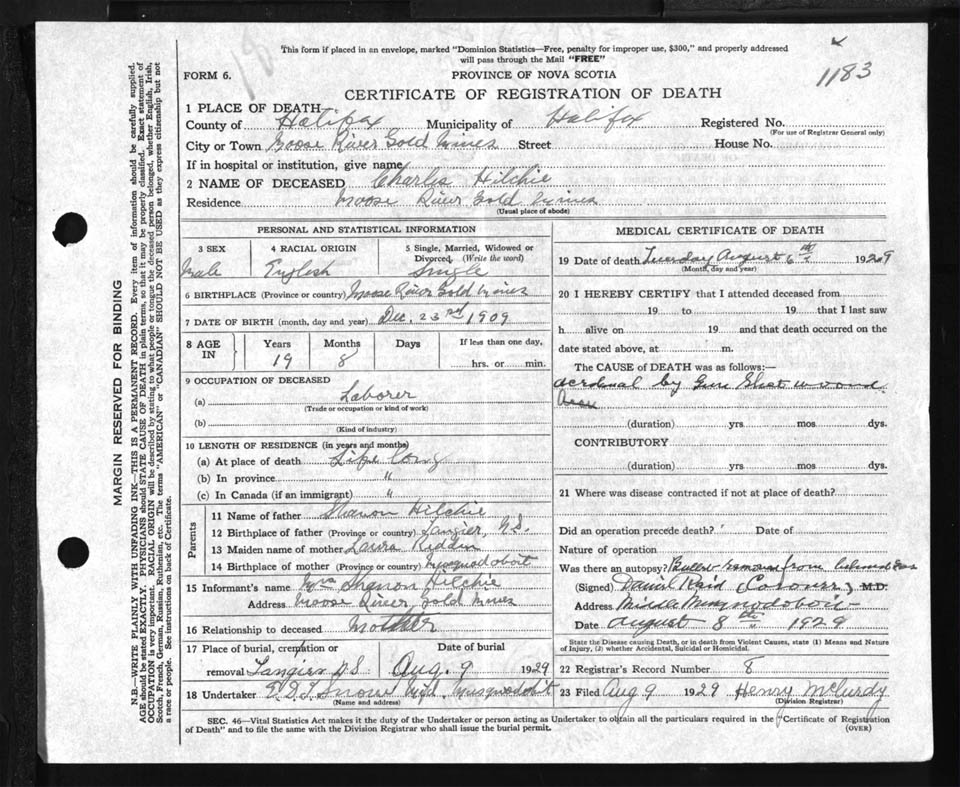 This form if placed in an envelope, marked "Dominion Statistics—Free, penalty for improper use, $300," and properly addressed
will pass through the Mail "FREE"
1183
FORM 6.
PROVINCE OF NOVA SCOTIA
CERTIFICATE OF REGISTRATION OF DEATH
1 PLACE OF DEATH
County of Halifax Municipality of Halifax Registered No.
(For use of Registrar General only)
City or Town Moose River Gold Mines Street House No.
If in hospital or institution, give name
2 NAME OF DECEASED Charles Hilchie
Residence Moose River Gold Mines
(Usual place of abode)
PERSONAL AND STATISTICAL INFORMATION
3 SEX 4 RACIAL ORIGIN 5 Single, Married, Widowed or
Divorced, (Write the word)
Male English Single
6 BIRTHPLACE (Province or country) Moose River Gold Mines
7 DATE OF BIRTH (month, day and year) Dec. 23rd 1909
8 AGE IN Years Months Days If less than one day,
19 8 hrs. or min.
9 OCCUPATION OF DECEASED
(a) Laborer
(Trade or occupation or kind of work)
(b)
(Kind of industry)
10 LENGTH OF RESIDENCE (in years and months)
(a) At place of death Life Long
(b) In province "
(c) In Canada (if an immigrant) "
Parents
11 Name of father Hilchie
12 Birthplace of father (Province or country) Tangier, N.S.
13 Maiden name of mother Laura
14 Birthplace of mother (Province or country) Musquodoboit
15 Informant's name Hilchie
Address Moose River gold mines
16 Relationship to deceased Mother
17 Place of burial, cremation or Date of burial
removal Tangier N.S. Aug. 9 1929
18 Undertaker Snow Musquodoboit
(Name and address)
MEDICAL CERTIFICATE OF DEATH
19 Date of death Tuesday August 6th 1929
(Month, day and year)
20 I HEREBY CERTIFY that I attended deceased from
19 to 19 that I last saw
h alive on 19 and that death occurred on the
date stated above, at m.
The CAUSE of DEATH was as follows:—
by Gun Shot wound
(duration) yrs mos dys.
CONTRIBUTORY
(duration) yrs mos dys.
21 Where was disease contracted if not at place of death?
Did an operation precede death? Date of
Nature of operation
Was there an autopsy? Bullet removed from behind
(Signed) Daniel Reid (Coroner) M.D.
Address Middle Musquodoboit
Date August 8th 1929
State the Disease causing Death, or in death from Violent Causes, state (1) Means and Nature
of Injury, (2) whether Accidental, Suicidal or Homicidal.
22 Registrar's Record Number 8
23 Filed Aug 9 1929 Henry McCurdy
(Division Registrar)
SEC. 46—Vital Statistics Act makes it the duty of the Undertaker or person acting as Undertaker to obtain all the particulars required in the "Certificate of Registration
of Death" and to file the same with the Division Registrar who shall issue the burial permit.
(OVER)
MARGIN RESERVED FOR BINDING
N.B.—WRITE PLAINLY WITH UNFADING INK—THIS IS A PERMANENT RECORD. Every item of information should be carefully supplied.
AGE should be stated EXACTLY. PHYSICIANS should STATE CAUSE OF DEATH in plain terms, so that it may be properly classified. Exact statement of
OCCUPATION is very important. RACIAL ORIGIN will be described by stating to what people or tongue the deceased person belonged, whether English, Irish,
Scotch, French, German, Russian, Ruthenian, etc. The terms "AMERICAN" or "CANADIAN" SHOULD NOT BE USED as they express citizenship but not
a race or people. See instructions on back of Certificate.